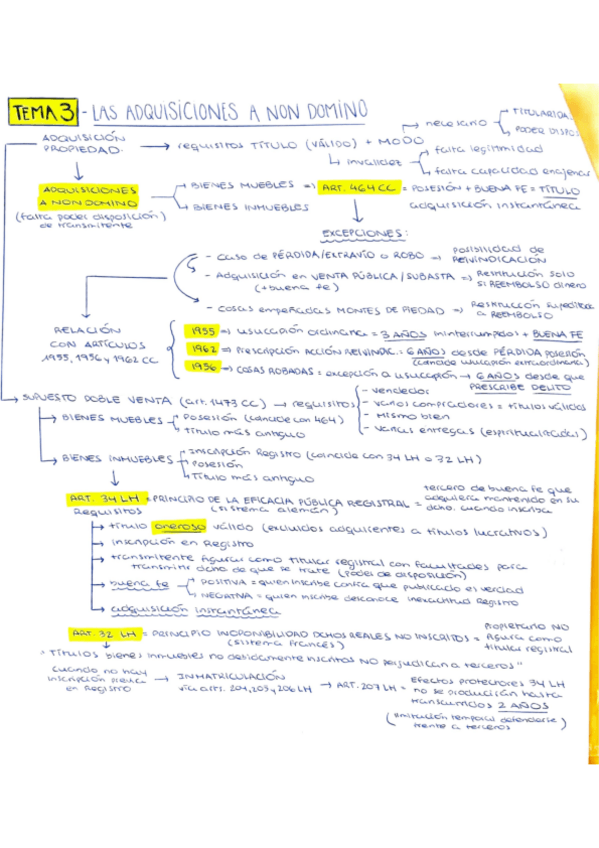 TEMA 3 - LAS ADQUISICIONES A NON DOMINO
ADQUISICIÓN PROPIEDAD: → requisitos TÍTULO (VÁLIDO) + MODO
necesario → TITULARIDA
PODER DISPOS
invalidez → falta legitimidad
falta capacidad enajenar
ADQUISICIONES A NON DOMINO
(falta poder disposición) de transmitente
→ BIENES MUEBLES ⇒ ART. 464 CC = POSESIÓN + BUENA FE = TÍTULO
adquisición instantánea
→ BIENES INMUEBLES
EXCEPCIONES:
- Caso de PÉRDIDA/EXTRAVÍO o ROBO ⇒ posibilidad de REIVINDICACIÓN
- Adquisición en VENTA PÚBLICA/SUBASTA ⇒ Restitución solo si REEMBOLSO dinero
(+ buena fe)
- cosas empeñadas MONTES DE PIEDAD ⇒ Restitución supeditada a REEMBOLSO
RELACIÓN CON ARTÍCULOS 1955, 1956 y 1962 CC
1955 ⇒ usucapión ordinaria = 3 AÑOS ininterrumpidos + BUENA FE
1962 ⇒ Prescripción ACCIÓN REIVINDIC. = 6 AÑOS desde PÉRDIDA posesión
(coincide usucapión extraordinaria)
1956 ⇒ COSAS ROBADAS = excepción a usucapión → 6 AÑOS desde que PRESCRIBE DELITO
SUPUESTO DOBLE VENTA (art. 1473 CC) → requisitos
- vendedor
- varios compradores = títulos válidos
- Mismo bien
- varias entregas (espiritualizadas)
→ BIENES MUEBLES
Posesión (coincide con 464)
Título más antiguo
→ BIENES INMUEBLES
Inscripción Registro (coincide con 34 LH o 32 LH)
Posesión
Título más antiguo
ART. 34 LH = PRINCIPIO DE LA EFICACIA PÚBLICA REGISTRAL = tercero de buena fe que adquiera mantenido en su dcho. cuando inscriba
(sistema alemán)
Requisitos
→ título oneroso válido (excluidos adquirentes a títulos lucrativos)
→ inscripción en Registro
→ transmitente figurar como titular registral con facultades para transmitir dcho de que se trate (Poder de disposición)
→ buena fe
POSITIVA = quien inscribe confía que publicado es verdad
NEGATIVA = quien inscribe desconoce inexactitud Registro
→ adquisición instantánea
ART. 32 LH = PRINCIPIO INOPONIBILIDAD DCHOS REALES NO INSCRITOS = Propietario NO figura como titular registral
(sistema francés)
"Títulos bienes inmuebles no debidamente inscritos NO perjudican a terceros"
cuando no hay inscripción previa en Registro → INMATRICULACIÓN vía arts. 204, 205 y 206 LH → ART. 207 LH = Efectos protectores 34 LH no se producirán hasta transcurridos 2 AÑOS
(limitación temporal defenderse frente a terceros)